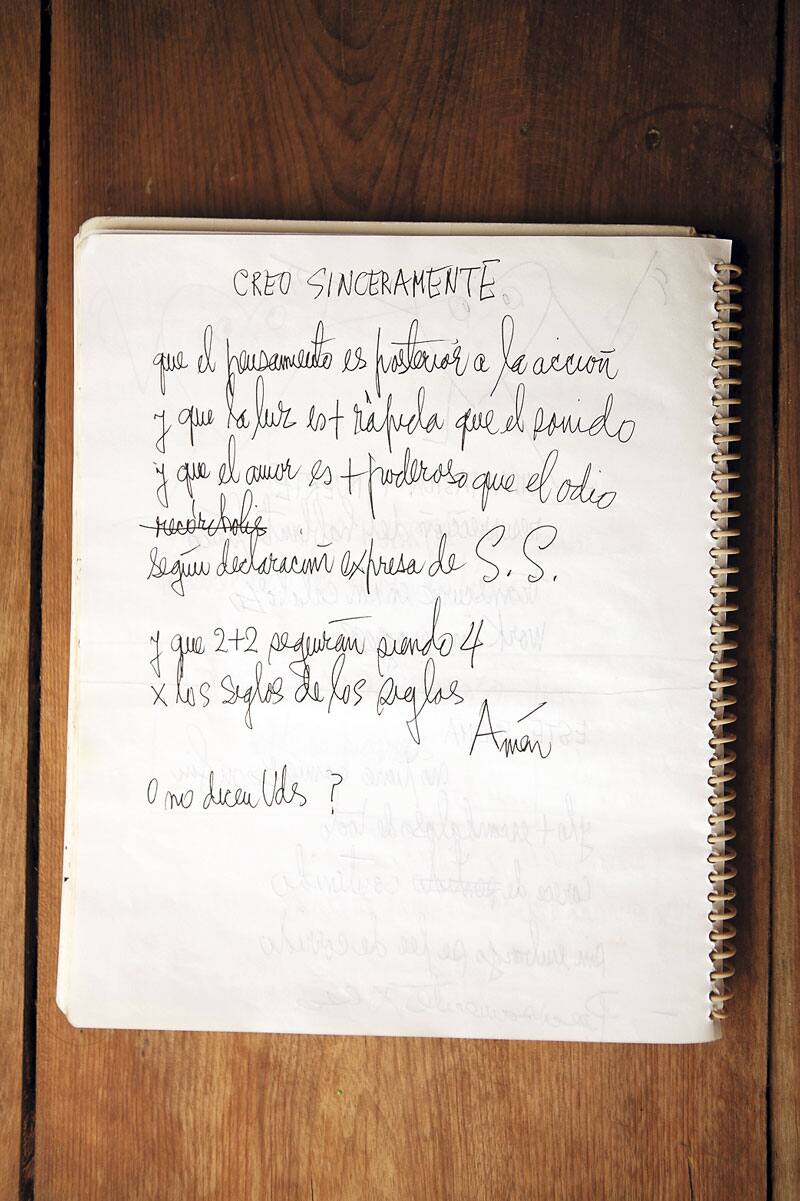 CREO SINCERAMENTE
que el pensamiento es posterior a la acción
y que la luz es + rápida que el sonido
y que el amor es + poderoso que el odio
recórcholis
según declaración expresa de S.S.
y que 2+2 seguirán siendo 4
x los siglos de los siglos
Amén
O no dicen Uds ?